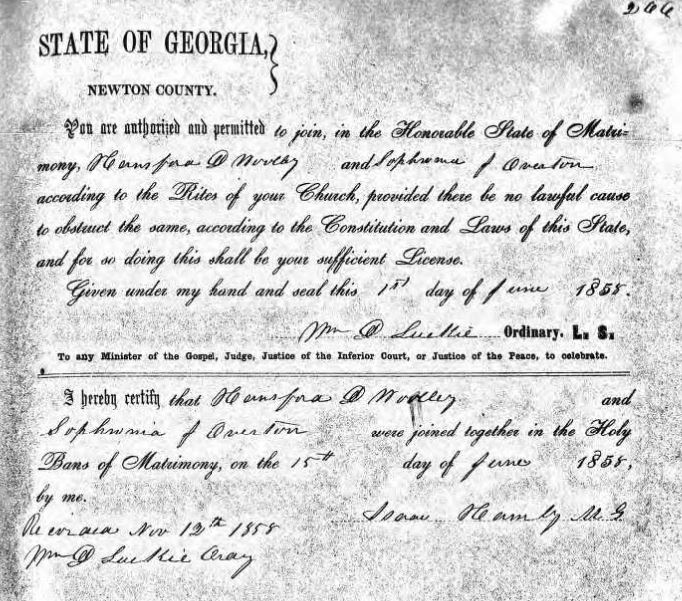 266
STATE OF GEORGIA,
NEWTON COUNTY.
You are authorized and permitted to join, in the Honorable State of Matri-
mony, Hernsford D Woolley and Sophronia J Overton
according to the Rites of your Church, provided there be no lawful cause
to obstruct the same, according to the Constitution and Laws of this State,
and for so doing this shall be your sufficient License.
Given under my hand and seal this 1st day of June 1858.
Wm D Luckie Ordinary. L. S.
To any Minister of the Gospel, Judge, Justice of the Inferior Court, or Justice of the Peace, to celebrate.
I hereby certify that Hernsford D Woolley and
Sophronia J Overton were joined together in the Holy
Bans of Matrimony, on the 15th day of June 1858,
by me.
Isaac Hamby M. G.
Recorded Nov 12th 1858
Wm D Luckie Ordy